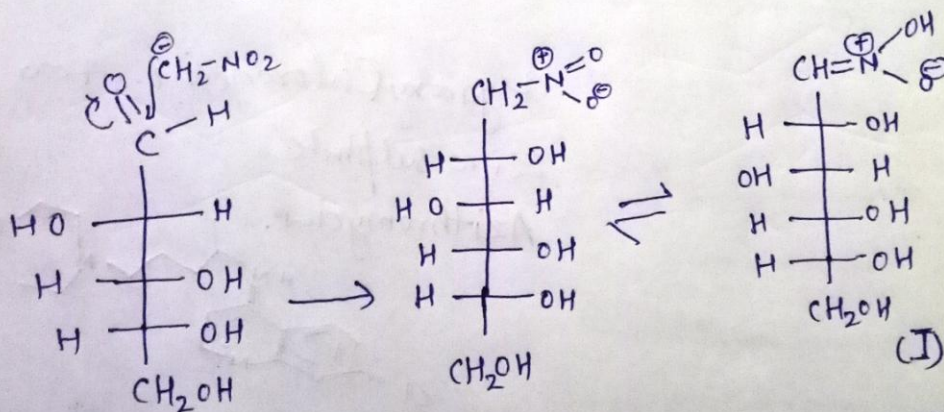 ⊖
CH2-NO2
O
C
H
HO H
H OH
H OH
CH2OH
⊕
CH2-N=O
O⊖
H OH
HO H
H OH
H OH
CH2OH
⊕
OH
CH=N
O⊖
H OH
OH H
H OH
H OH
CH2OH
(I)